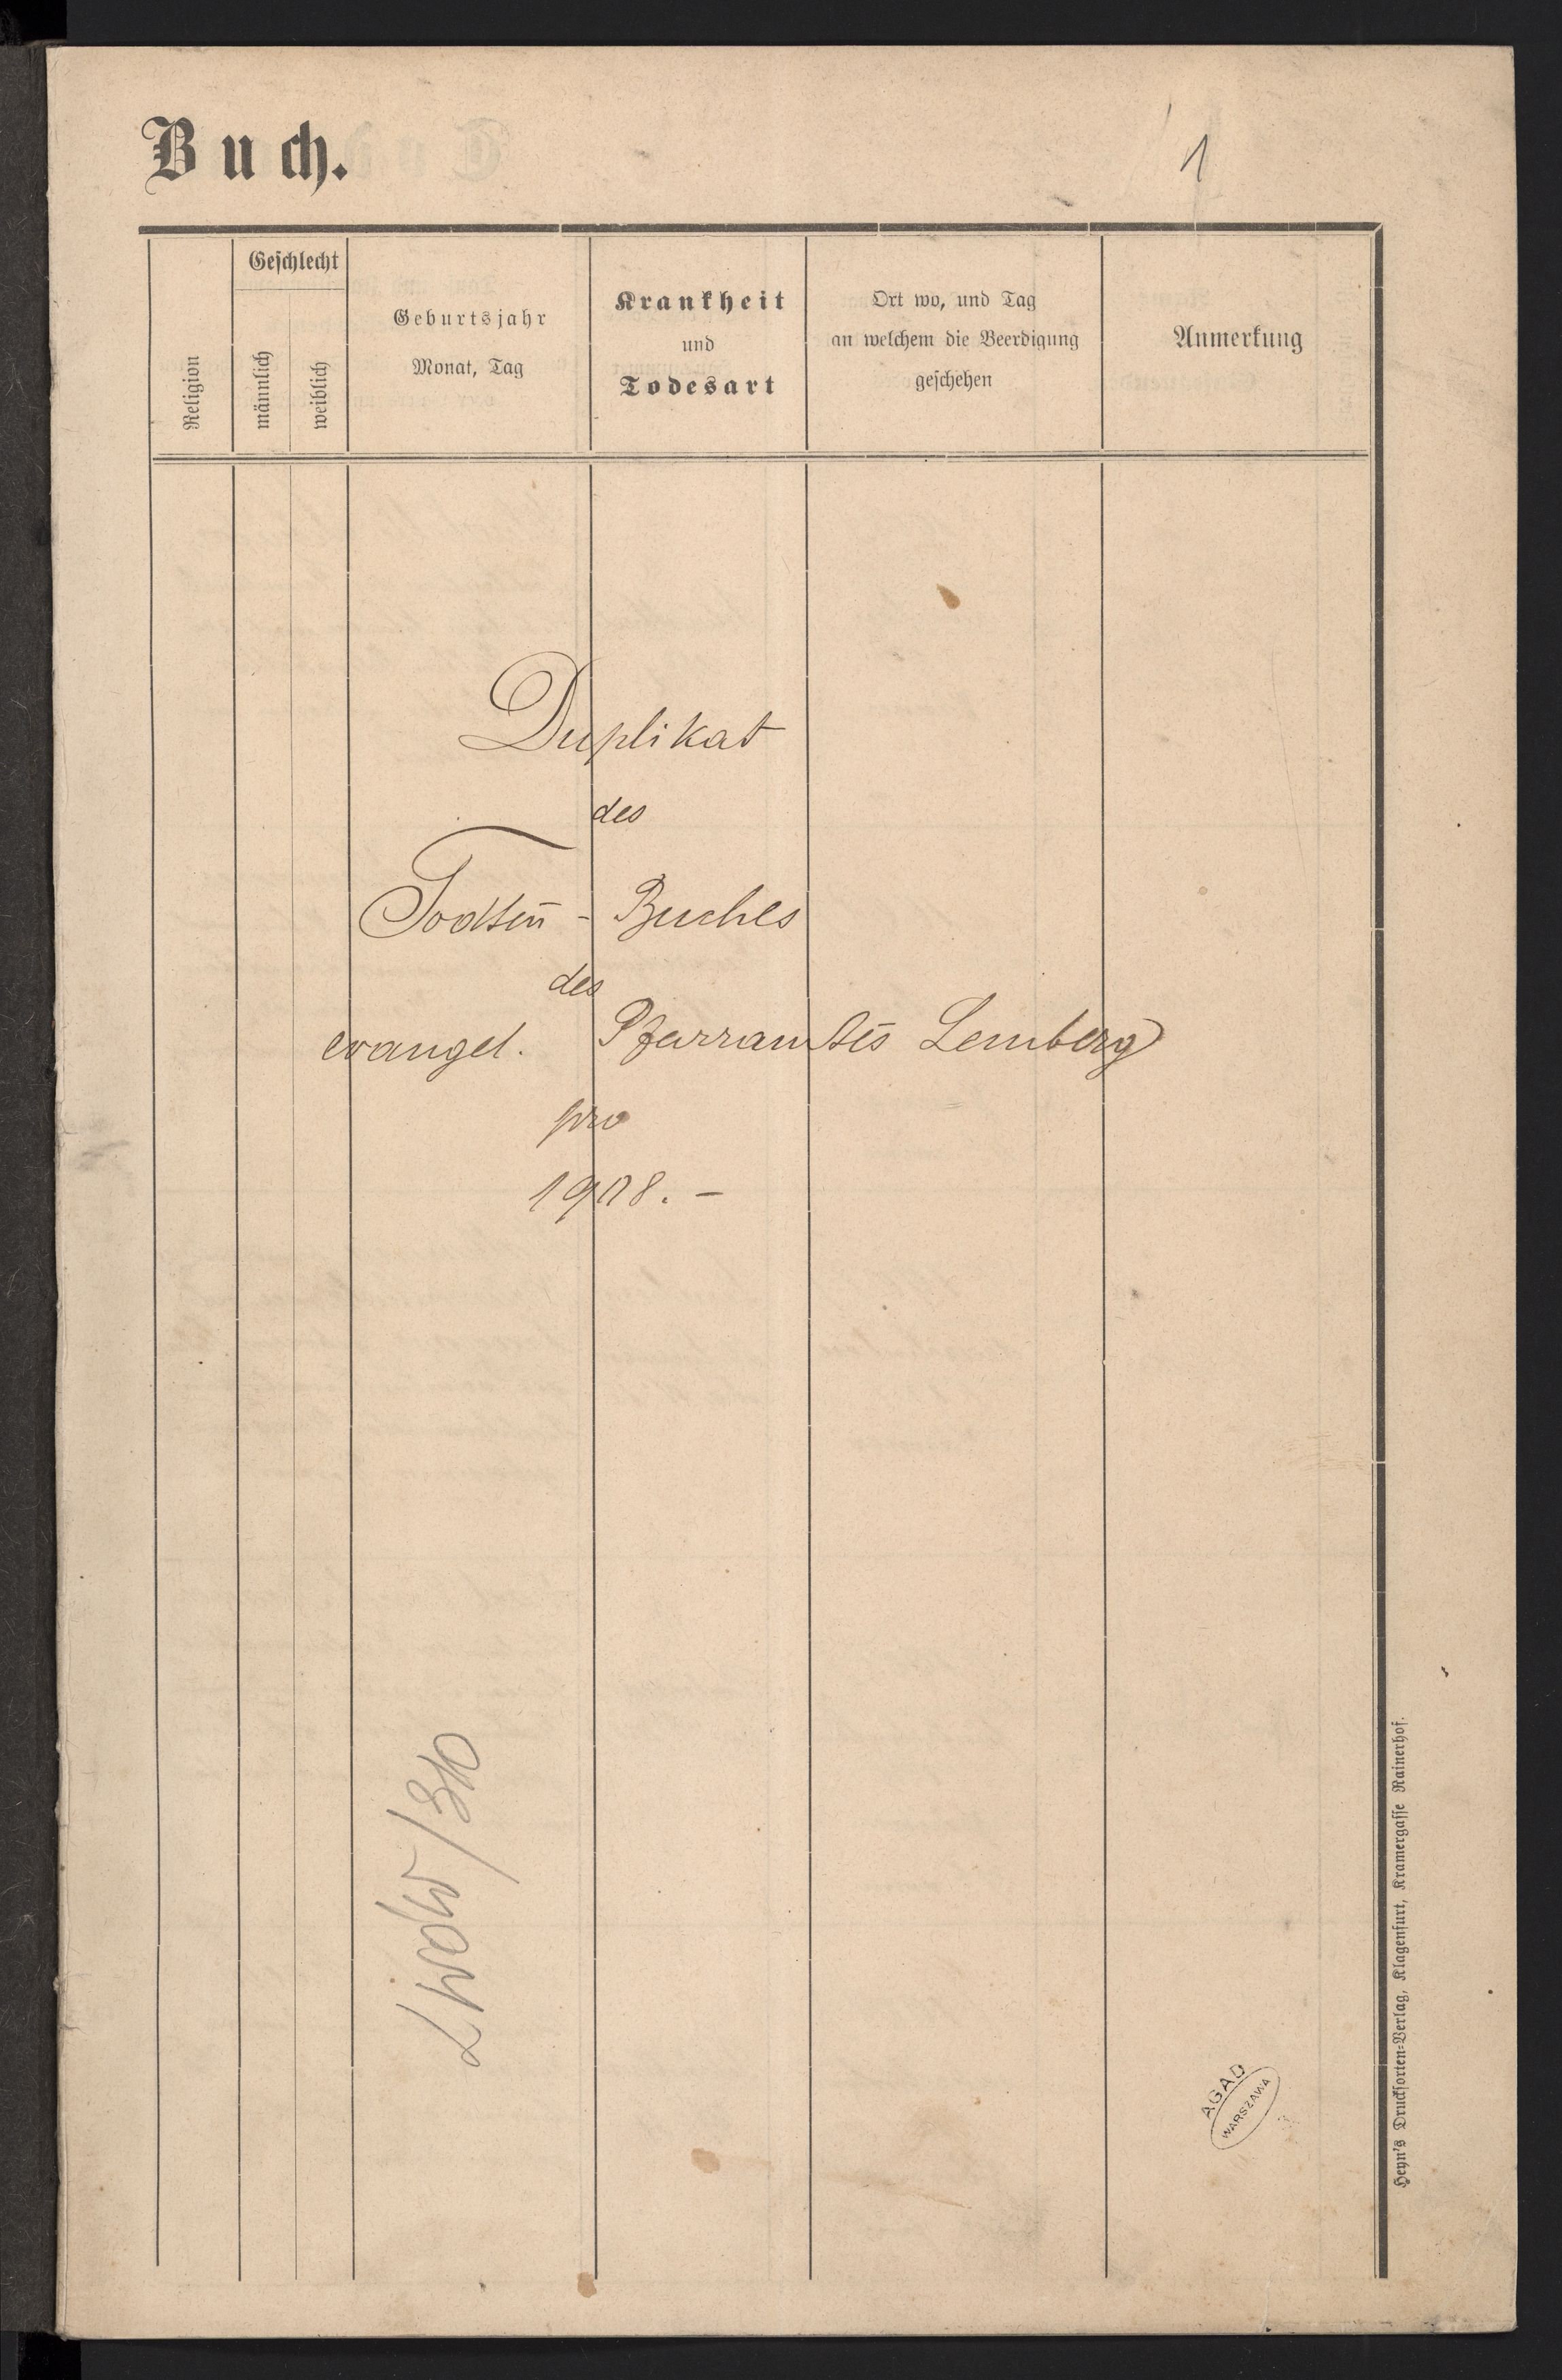 Buch.
1
Religion
Geschlecht
männlich
weiblich
Geburtsjahr
Monat, Tag
Krankheit
und
Todesart
Ort wo, und Tag
an welchem die Beerdigung
geschehen
Anmerkung
Duplikat
des
Todten - Buches
des
evangel. Pfarramtes Lemberg
pro
1908. -
Lwów/310
AGAD
WARSZAWA
Heyn's Drucksorten-Verlag, Klagenfurt, Kramergasse Rainerhof.